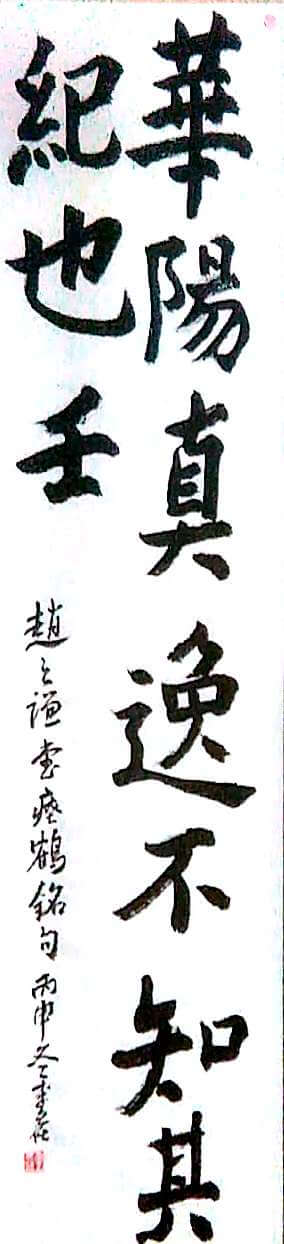 華陽真逸不知其
紀也壬
趙之謙書瘞鶴銘句丙申冬